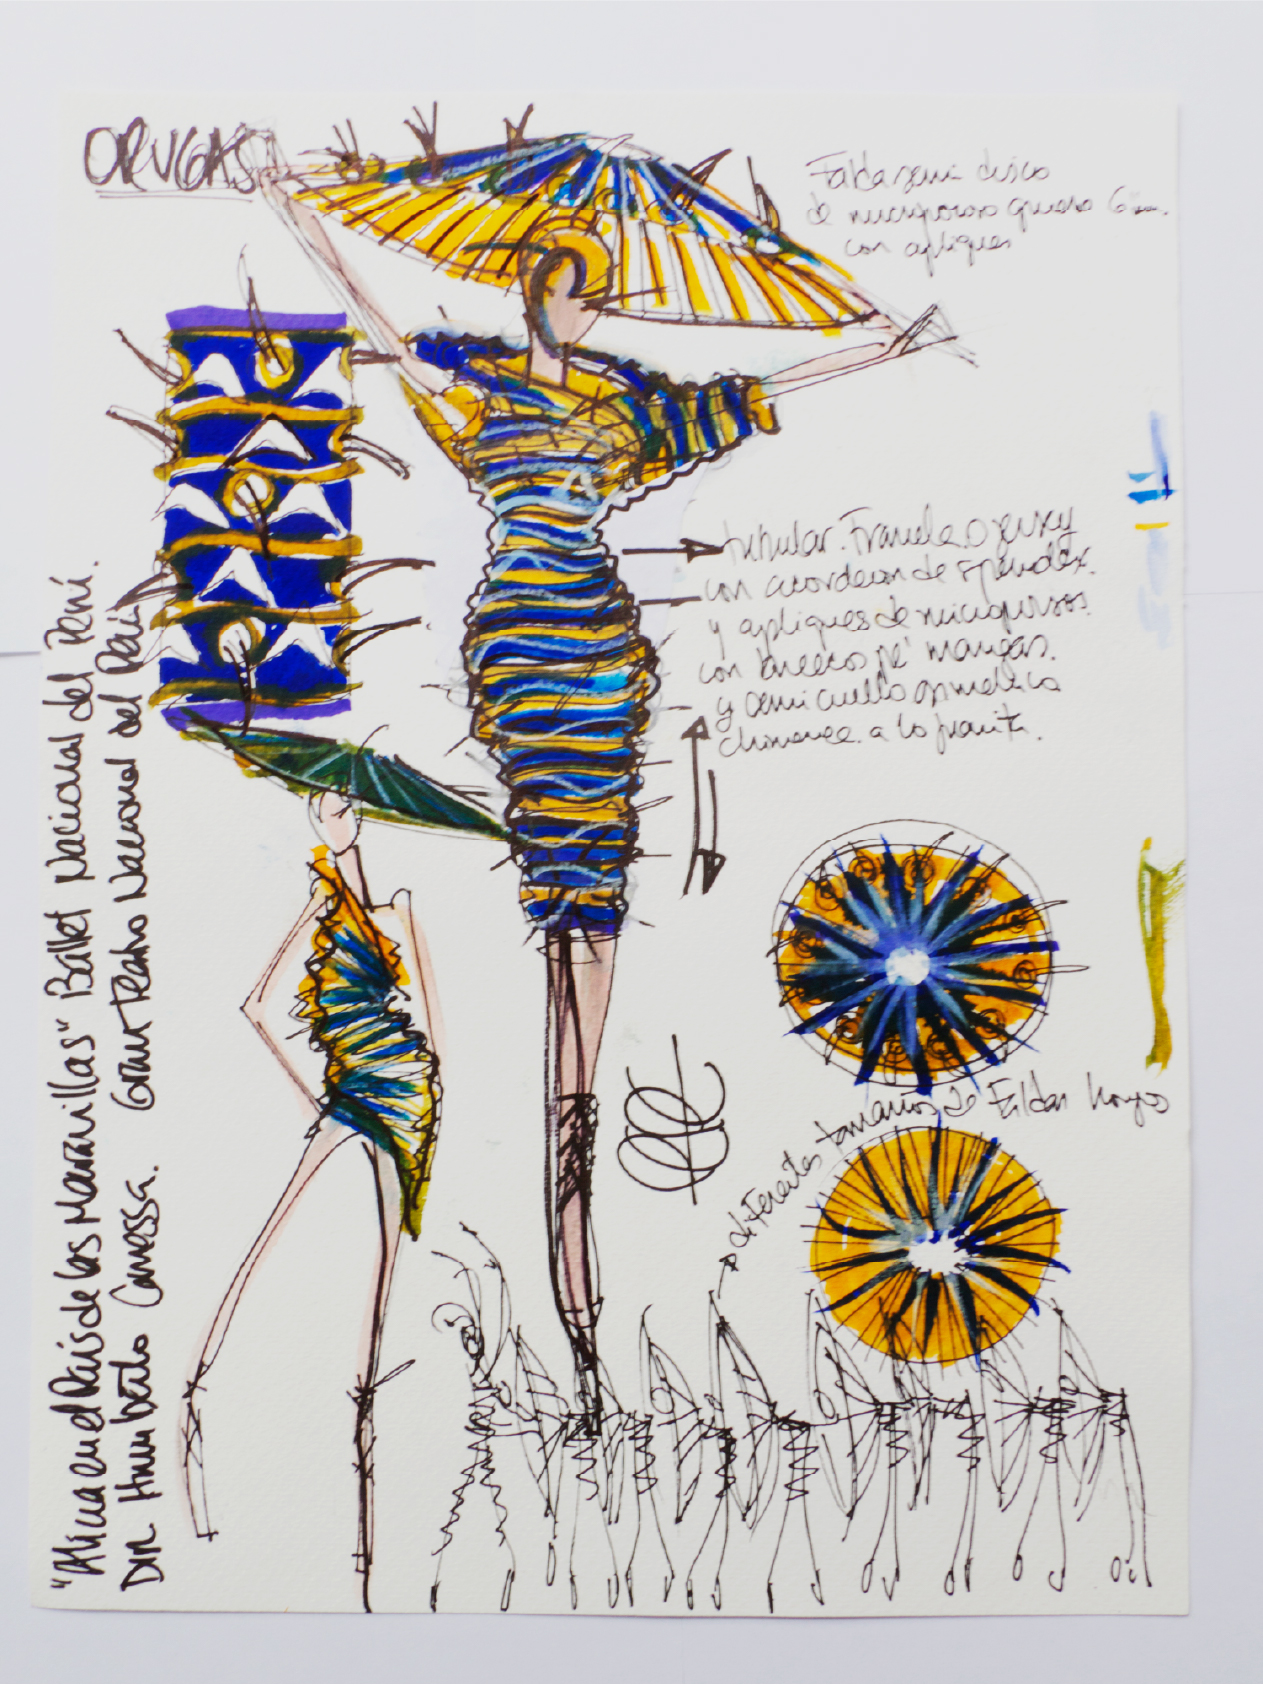 ORUGAS
Falda semi disco
de microporoso grueso 6
con apliques
tubular. Franela o jersey
con acordeon de spandex.
y apliques de microporoso.
con mangas.
y semi cuello
chimenea. a lo
diferentes tamaños de Faldas hongos
"Alicia en el País de las Maravillas" Ballet Nacional del Perú.
DIR. Humberto Canessa. Gran Teatro Nacional del Perú